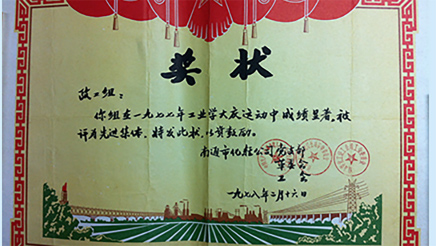 奖状
政工组：
你组在一九七七年工业学大庆运动中成绩显著，被
评为先进集体，特发此状，以资鼓励。
南通市化轻公司党支部
革委会
工会
一九七八年二月十六日